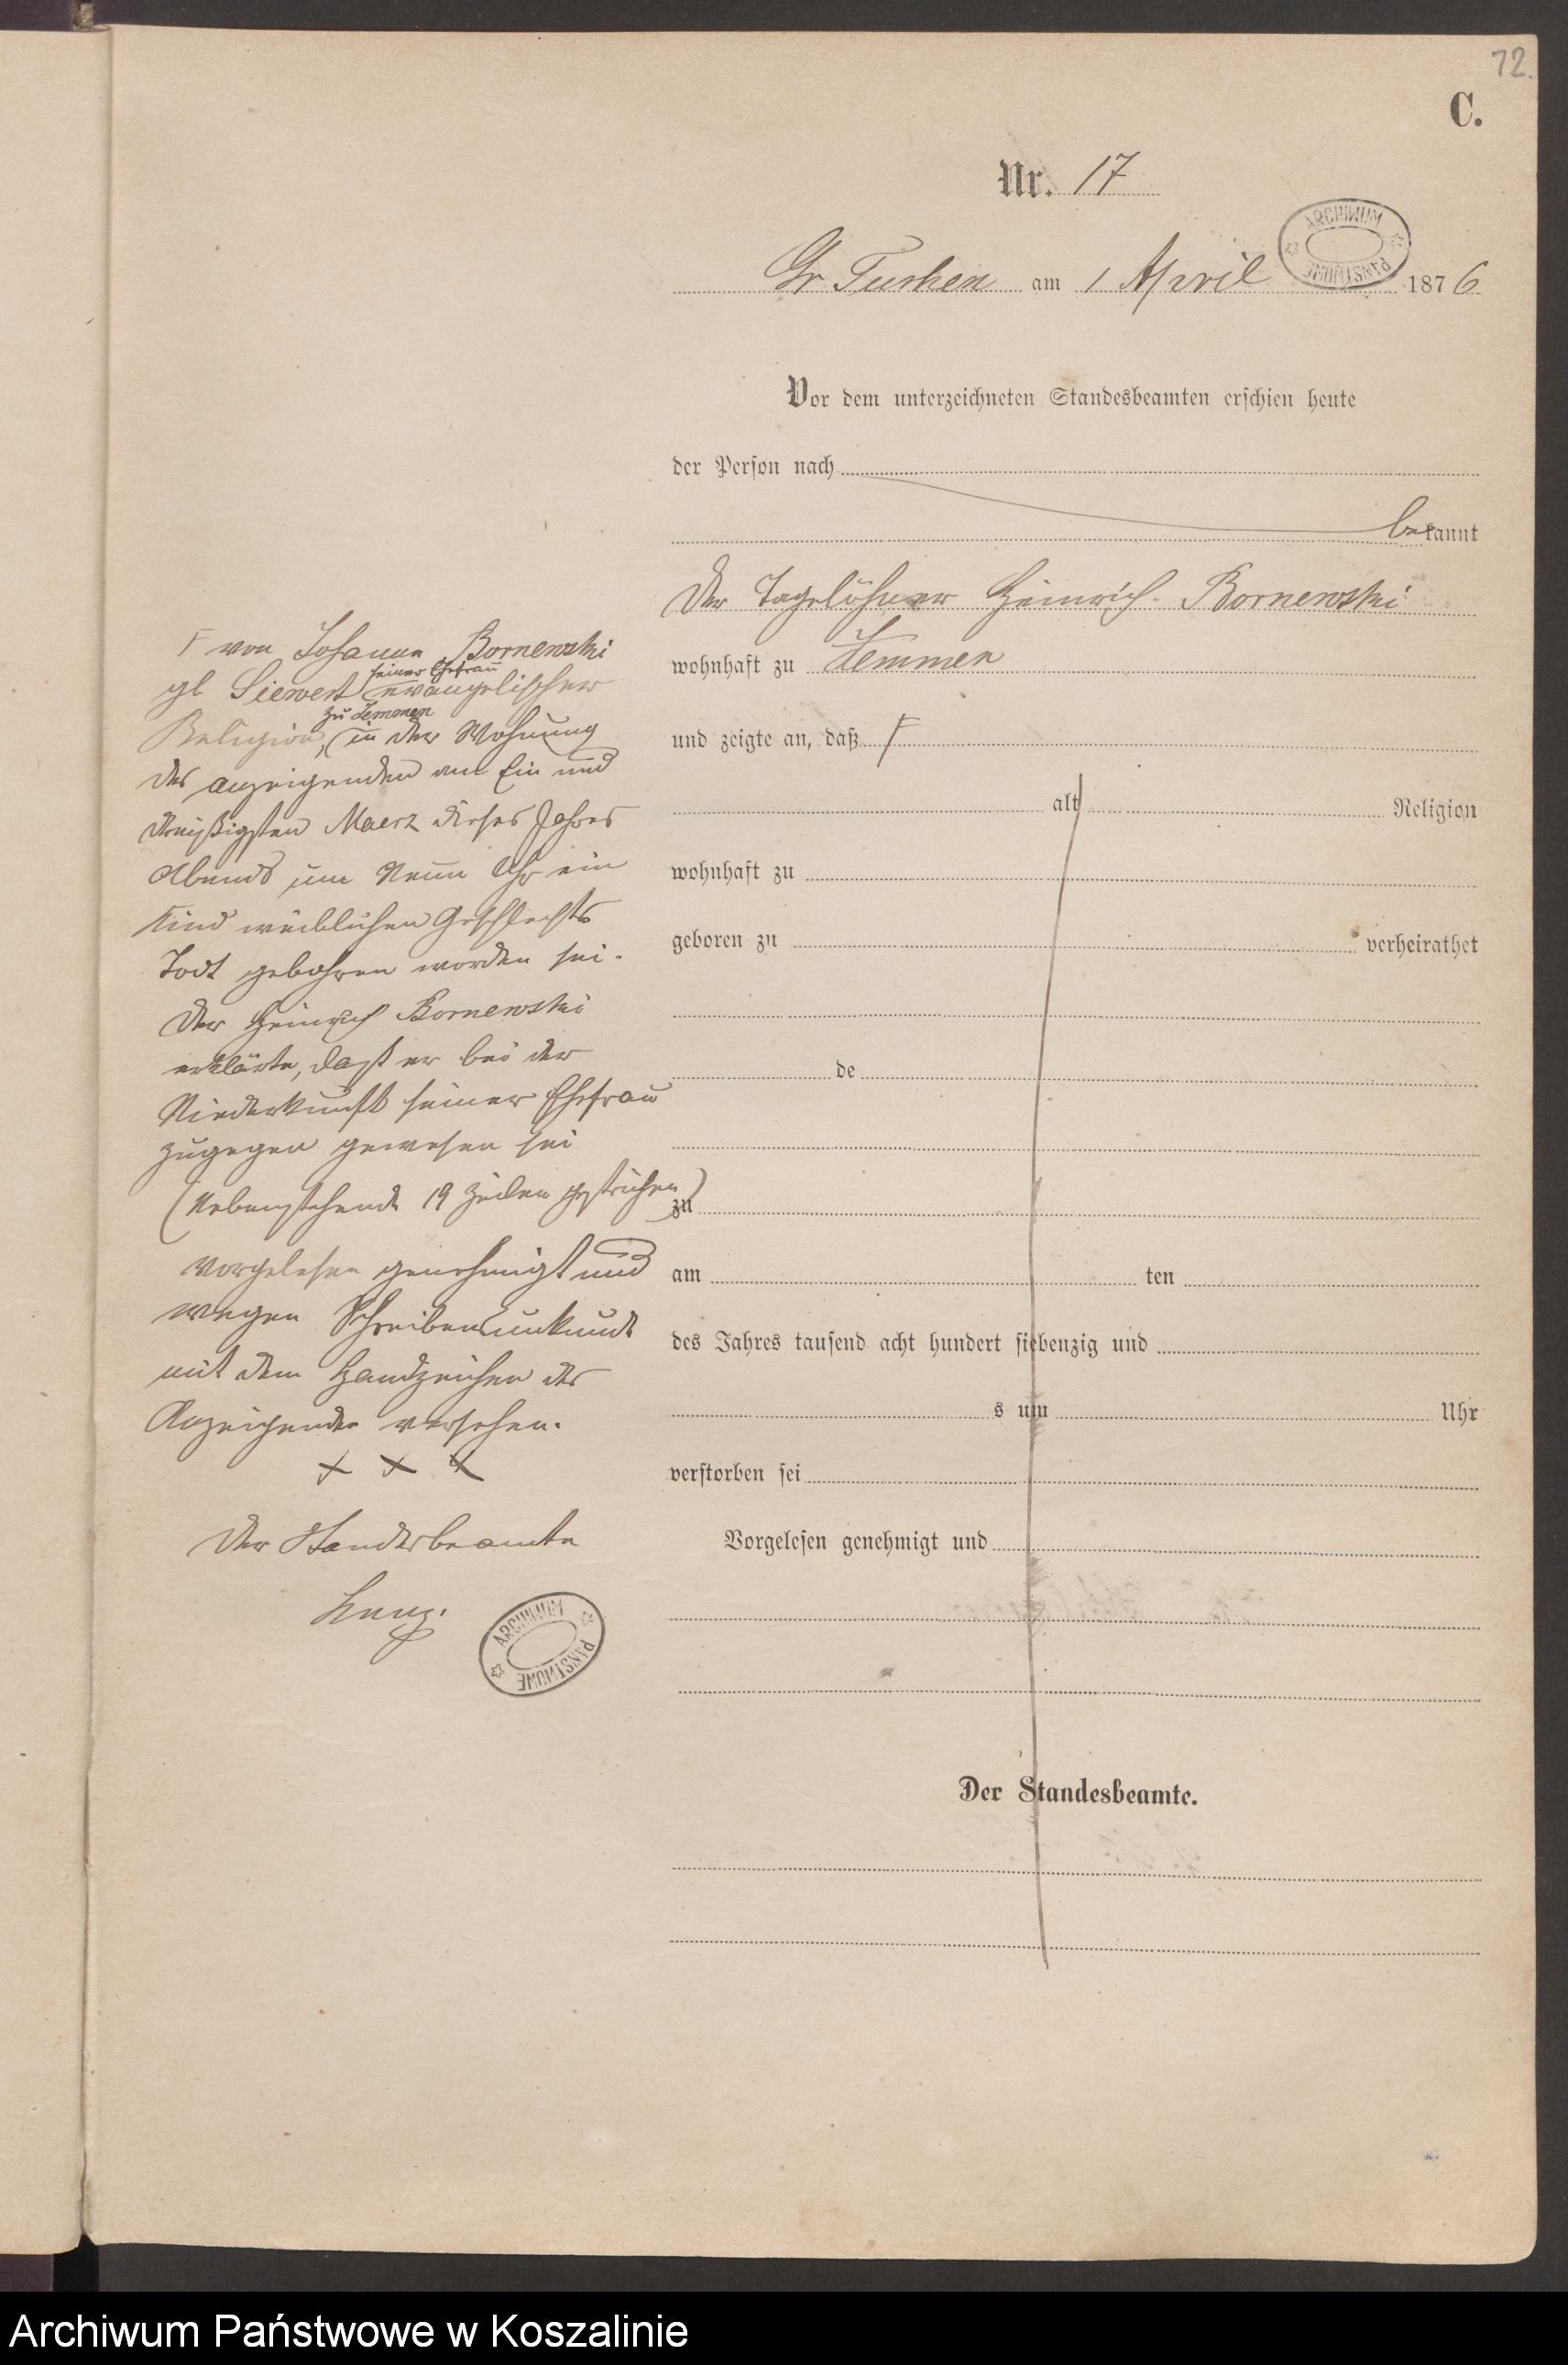 72.
C.
Nr. 17
ARCHIWUM PAŃSTWOWE
Gr Tuchen am 1 April 1876
Vor dem unterzeichneten Standesbeamten erschien heute
der Person nach
bekannt
Der Tagelöhner Heinrich Bornewski
wohnhaft zu Zemmen
und zeigte an, daß F
alt Religion
wohnhaft zu
geboren zu verheirathet
de
zu
am ten
des Jahres tausend acht hundert siebenzig und
s um Uhr
verstorben sei
Vorgelesen genehmigt und
Der Standesbeamte.
F von Johanna Bornewski
gb Siewert seiner Ehefrau evangelischer
Religion, zu Zemmen in der Wohnung
des anzeigenden am Ein und
dreißigsten Maerz dieses Jahres
Abends um Neun Uhr ein
Kind weiblichen Geschlechts
Todt gebohren worden sei.
Der Heinrich Bornewski
erklärte, daß er bei der
Niederkunft seiner Ehefrau
zugegen gewesen sei
(Nebenstehende 19 Zeilen gestrichen)
Vorgelesen genehmigt und
wegen Schreibensunkunde
mit dem Handzeichen des
Anzeigenden versehen.
+ + +
Der Standesbeamte
ARCHIWUM PAŃSTWOWE
Archiwum Państwowe w Koszalinie